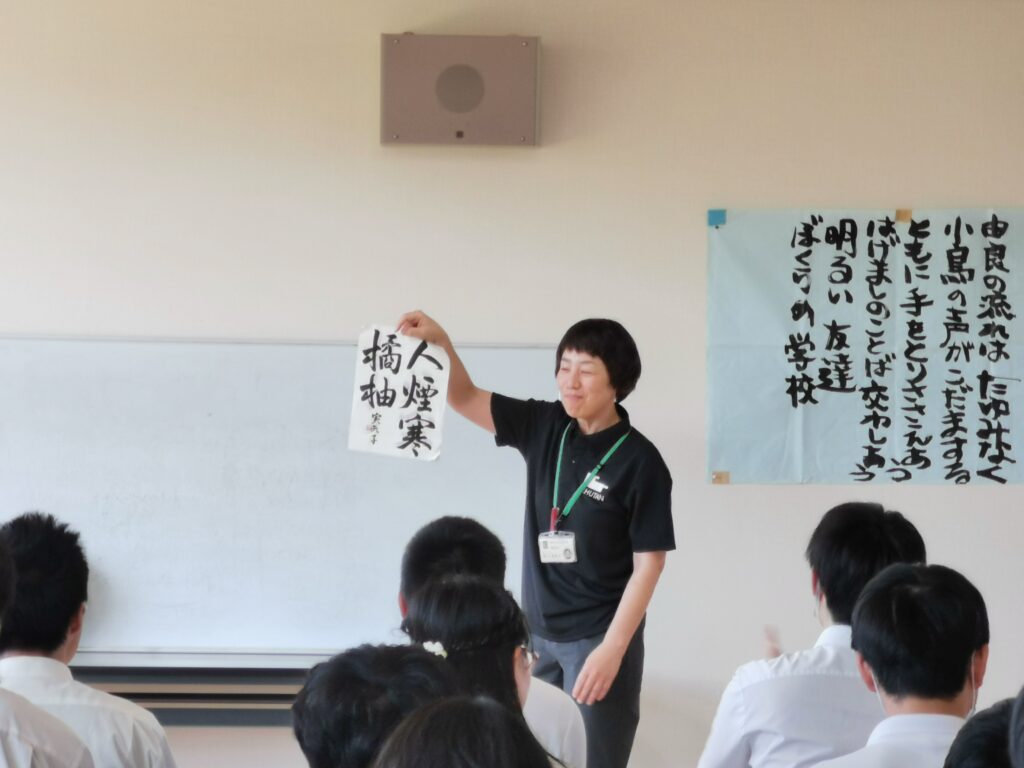 人煙寒
橘柚
由良の流れは たゆみなく
小鳥の声が こだまする
ともに手をとり ささえあい
はげましのことば 交わしあう
明るい 友達
ぼくらの学校
HUTAN